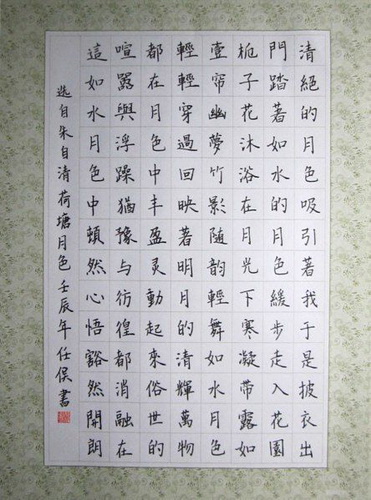 清絕的月色吸引著我于是披衣出
門踏著如水的月色緩步走入花園
栀子花沐浴在月光下寒凝帶露如
壹帘幽夢竹影随韵輕舞如水月色
輕輕穿過回映著明月的清輝萬物
都在月色中丰盈灵動起來俗世的
喧嚣與浮躁猶豫与彷徨都消融在
這如水月色中頓然心悟豁然開朗
选自朱自清荷塘月色壬辰年任俣書